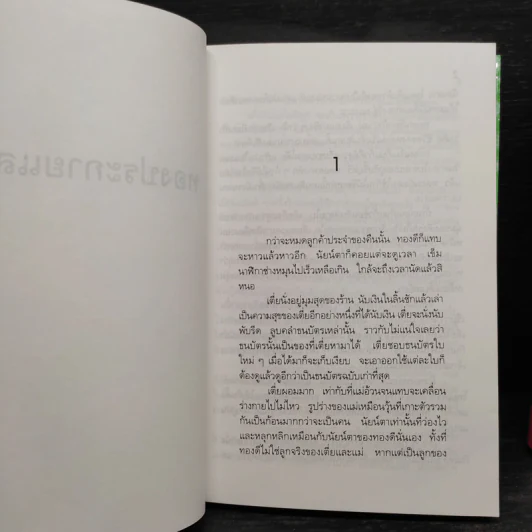 1
กว่าจะหมดลูกค้าประจำของคืนนั้น ทองตีก็แทบ
จะหาวแล้วหาวอีก นัยน์ตาก็คอยแต่จะดูเวลา เข็ม
นาฬิกาช่างหมุนไปเร็วเหลือเกิน ใกล้จะถึงเวลานัดแล้วสิ
หนอ
เตี่ยนั่งอยู่มุมสุดของร้าน นับเงินในลิ้นชักแล้วเล่า
เป็นความสุขของเตี่ยอีกอย่างหนึ่งที่ได้นับเงิน เตี่ยจะนั่งนับ
พับรีด ลูบคลำธนบัตรเหล่านั้น ราวกับไม่แน่ใจเลยว่า
ธนบัตรนั้นเป็นของที่เตี่ยหามาได้ เตี่ยชอบธนบัตรใบ
ใหม่ ๆ เมื่อได้มาก็จะเก็บเงียบ จะเอาออกใช้แต่ละใบก็
ต้องดูแล้วดูอีกว่าเป็นธนบัตรฉบับเก่าที่สุด
เตี่ยผอมมาก เท่ากับที่แม่อ้วนจนแทบจะเคลื่อน
ร่างกายไปไม่ไหว รูปร่างของแม่เหมือนวุ้นที่เกาะตัวรวม
กันเป็นก้อนมากกว่าจะเป็นคน นัยน์ตาเท่านั้นที่ว่องไว
และหลุกหลิกเหมือนกับนัยน์ตาของทองตีนั่นเอง ทั้งที่
ทองตีไม่ใช่ลูกจริงของเตี่ยและแม่ หากแต่เป็นลูกของ